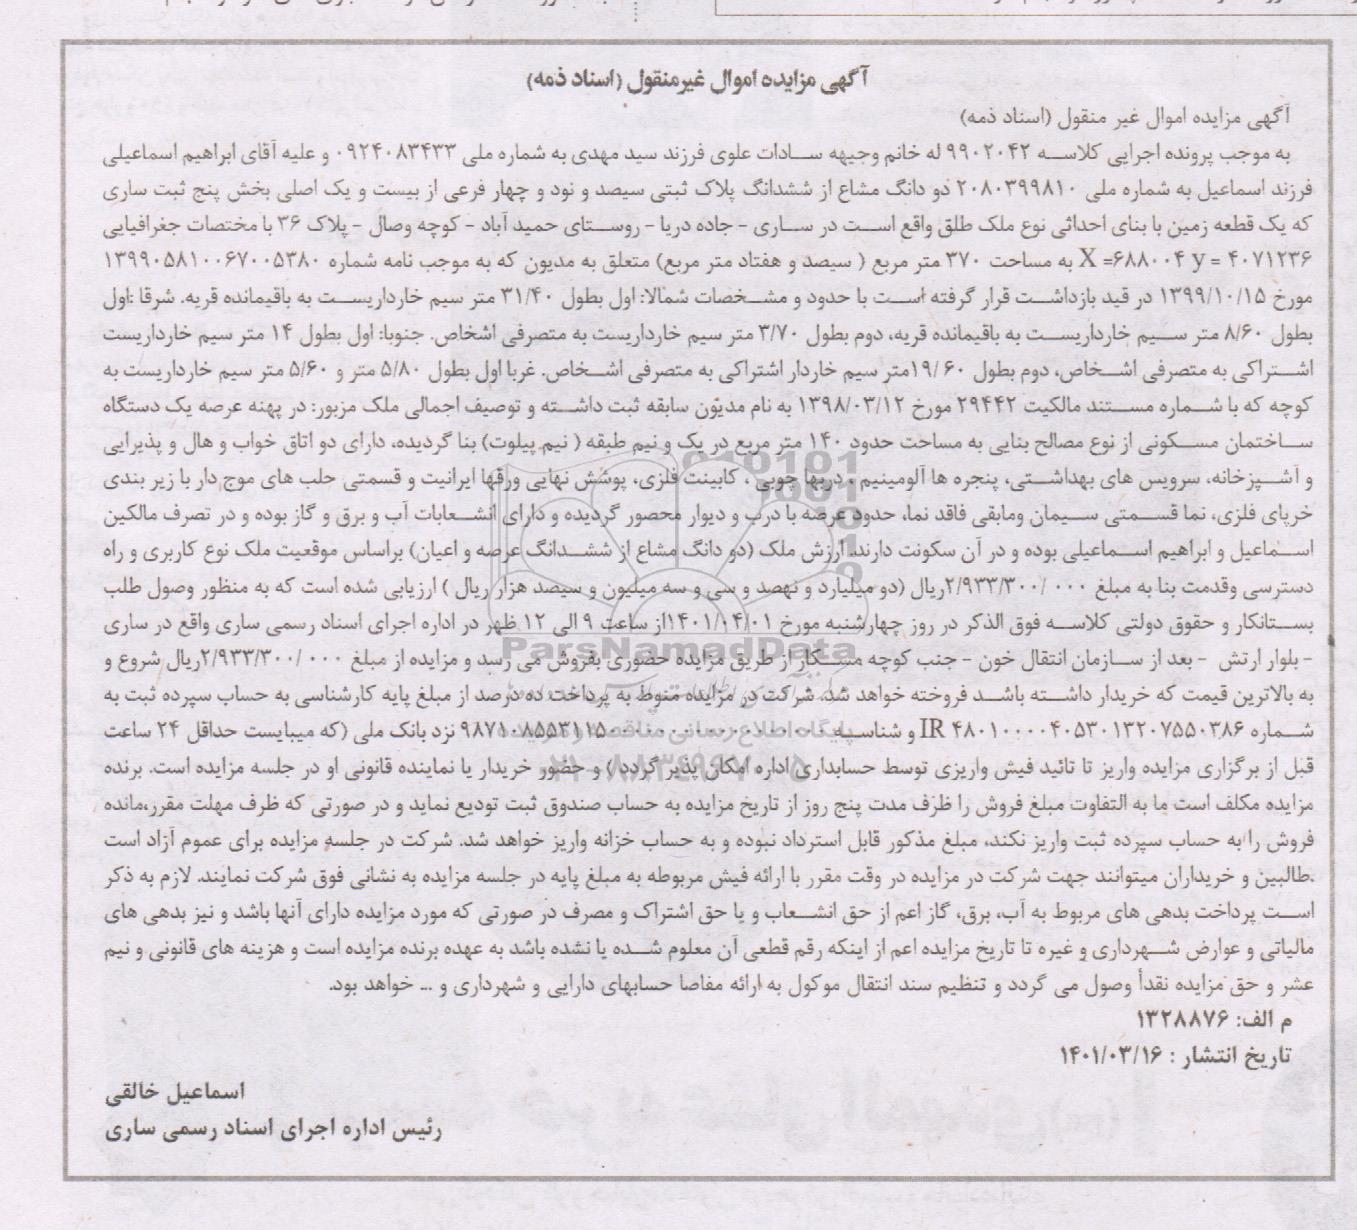 آگهی مزایده اموال غیرمنقول (اسناد ذمه)
آگهی مزایده اموال غیر منقول (اسناد ذمه)
به موجب پرونده اجرایی کلاسه ۹۹۰۲۰۴۲ له خانم وجیهه سادات علوی فرزند سید مهدی به شماره ملی ۰۹۲۴۰۸۳۴۳۳ و علیه آقای ابراهیم اسماعیلی
فرزند اسماعیل به شماره ملی ۲۰۸۰۳۹۹۸۱۰ دو دانگ مشاع از ششدانگ پلاک ثبتی سیصد و نود و چهار فرعی از بیست و یک اصلی بخش پنج ثبت ساری
که یک قطعه زمین با بنای احداثی نوع ملک طلق واقع است در ساری - جاده دریا - روستای حمید آباد - کوچه وصال - پلاک ۳۶ با مختصات جغرافیایی
X =۶۸۸۰۰۴ y = ۴۰۷۱۲۳۶ به مساحت ۳۷۰ متر مربع ( سیصد و هفتاد متر مربع) متعلق به مدیون که به موجب نامه شماره ۱۳۹۹۰۵۸۱۰۰۶۷۰۰۵۳۸۰
مورخ ۱۳۹۹/۱۰/۱۵ در قید بازداشت قرار گرفته است با حدود و مشخصات شمالا: اول بطول ۳۱/۴۰ متر سیم خارداریست به باقیمانده قریه. شرقا :اول
بطول ۸/۶۰ متر سیم خارداریست به باقیمانده قریه، دوم بطول ۳/۷۰ متر سیم خارداریست به متصرفی اشخاص. جنوبا: اول بطول ۱۴ متر سیم خارداریست
اشتراکی به متصرفی اشخاص، دوم بطول ۱۹/۶۰متر سیم خاردار اشتراکی به متصرفی اشخاص. غربا اول بطول ۵/۸۰ متر و ۵/۶۰ متر سیم خارداریست به
کوچه که با شماره مستند مالکیت ۲۹۴۴۲ مورخ ۱۳۹۸/۰۳/۱۲ به نام مدیون سابقه ثبت داشته و توصیف اجمالی ملک مزبور: در پهنه عرصه یک دستگاه
ساختمان مسکونی از نوع مصالح بنایی به مساحت حدود ۱۴۰ متر مربع در یک و نیم طبقه ( نیم پیلوت) بنا گردیده، دارای دو اتاق خواب و هال و پذیرایی
و آشپزخانه، سرویس های بهداشتی، پنجره ها آلومینیم ، دربها چوبی ، کابینت فلزی، پوشش نهایی ورقها ایرانیت و قسمتی حلب های موج دار با زیر بندی
خرپای فلزی، نما قسمتی سیمان ومابقی فاقد نما، حدود عرصه با درب و دیوار محصور گردیده و دارای انشعابات آب و برق و گاز بوده و در تصرف مالکین
اسماعیل و ابراهیم اسماعیلی بوده و در آن سکونت دارند. ارزش ملک (دو دانگ مشاع از ششدانگ عرصه و اعیان) براساس موقعیت ملک نوع کاربری و راه
دسترسی وقدمت بنا به مبلغ ۲/۹۳۳/۳۰۰/۰۰۰ریال (دو میلیارد و نهصد و سی و سه میلیون و سیصد هزار ریال ) ارزیابی شده است که به منظور وصول طلب
بستانکار و حقوق دولتی کلاسه فوق الذکر در روز چهارشنبه مورخ ۱۴۰۱/۰۴/۰۱از ساعت ۹ الی ۱۲ ظهر در اداره اجرای اسناد رسمی ساری واقع در ساری
- بلوار ارتش - بعد از سازمان انتقال خون - جنب کوچه مسگار از طریق مزایده حضوری بفروش می رسد و مزایده از مبلغ ۲/۹۳۳/۳۰۰/۰۰۰ریال شروع و
به بالاترین قیمت که خریدار داشته باشد فروخته خواهد شد. شرکت در مزایده منوط به پرداخت ده درصد از مبلغ پایه کارشناسی به حساب سپرده ثبت به
شماره IR ۴۸۰۱۰۰۰۰۴۰۵۳۰۱۳۲۰۷۵۵۰۳۸۶ و شناسه نزد بانک ملی (که میبایست حداقل ۲۴ ساعت
قبل از برگزاری مزایده واریز تا تائید فیش واریزی توسط حسابداری اداره امکان پذیر گردد) و حضور خریدار یا نماینده قانونی او در جلسه مزایده است. برنده
مزایده مکلف است ما به التفاوت مبلغ فروش را ظرف مدت پنج روز از تاریخ مزایده به حساب صندوق ثبت تودیع نماید و در صورتی که ظرف مهلت مقرر،مانده
فروش را به حساب سپرده ثبت واریز نکند، مبلغ مذکور قابل استرداد نبوده و به حساب خزانه واریز خواهد شد. شرکت در جلسه مزایده برای عموم آزاد است
.طالبین و خریداران میتوانند جهت شرکت در مزایده در وقت مقرر با ارائه فیش مربوطه به مبلغ پایه در جلسه مزایده به نشانی فوق شرکت نمایند. لازم به ذکر
است پرداخت بدهی های مربوط به آب، برق، گاز اعم از حق انشعاب و یا حق اشتراک و مصرف در صورتی که مورد مزایده دارای آنها باشد و نیز بدهی های
مالیاتی و عوارض شهرداری و غیره تا تاریخ مزایده اعم از اینکه رقم قطعی آن معلوم شده یا نشده باشد به عهده برنده مزایده است و هزینه های قانونی و نیم
عشر و حق مزایده نقدأ وصول می گردد و تنظیم سند انتقال موکول به ارائه مفاصا حسابهای دارایی و شهرداری و ... خواهد بود.
م الف: ۱۳۲۸۸۷۶
تاریخ انتشار : ۱۴۰۱/۰۳/۱۶
اسماعیل خالقی
رئیس اداره اجرای اسناد رسمی ساری
ParsNamadData